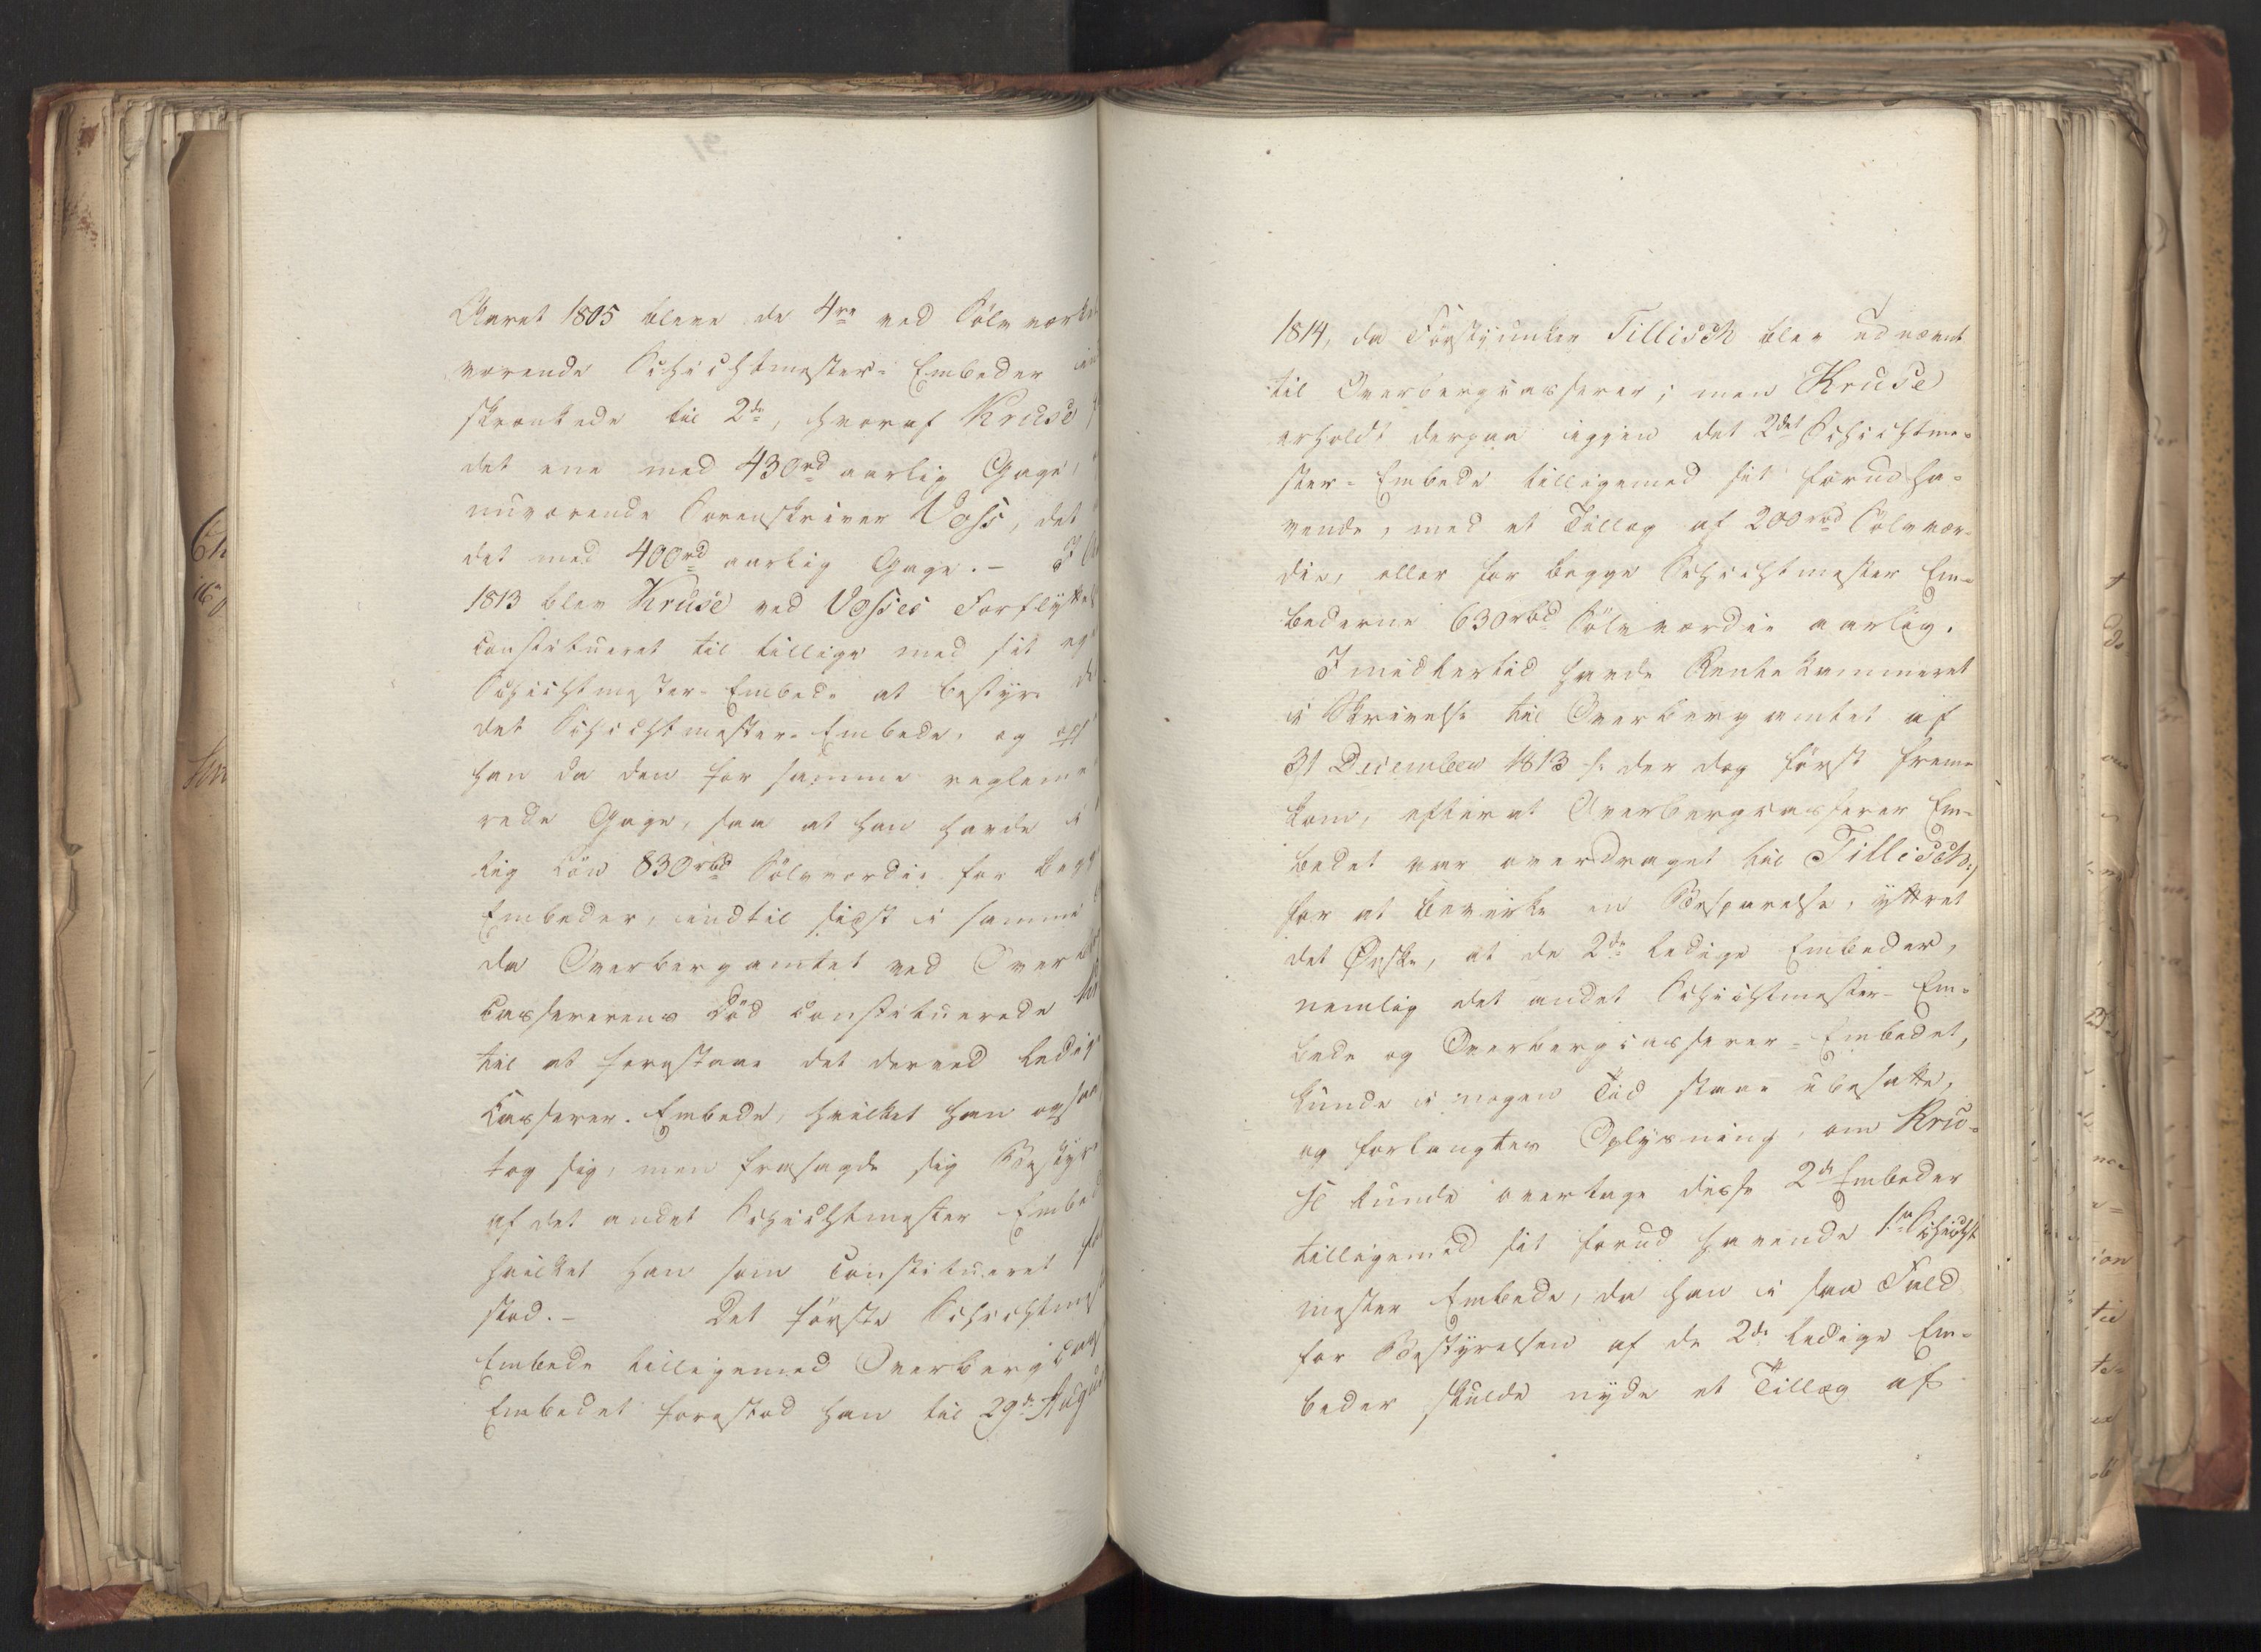 Aaret 1805 bleve de 4re ved Sølvværket
værende Schichtmester-Embeder ind
skrænkede til 2de, hvoraf Kruse
det ene med 430rd aarlig Gage,
nuværende Sorenskriver Voss, det
det med 400rd aarlig Gage.- I
1813 blev Kruse ved Vosses Forflyttel
constitueret til tillige med sit eg
Schichtmester-Embede at bestyre
det Schichtmester-Embede, og
han da den for samme reglem
rede Gage, saa at han havde i
lig Løn 830rbd Sølvværdie for beg
Embeder, indtil sidst i samme
da Overbergamtet ved Over
Cassererens Død constituerede
til at forestaae det derved ledig
Casserer-Embede, hvilket han ogsaa
tog sig, men frasagde sig Bestyr
af det andet Schichtmester Embe
hvilket han som Constitueret
stod.- Det første Schichtmes
Embede tilligemed Overberg cas
Embedet forestod han til 29de Augu
1814, da Forstjunker Tillisch blev udnævnt
til Overbergcasserer; men Kruse
erholdt derpaa igjen det 2det Schichtme-
ster-Embede tilligemed sit forud ha-
vende, med et Tillæg af 200rbd Sølvvær-
die, eller for begge Schichtmester Em-
bederne 630rbd Sølvværdie aarlig.
Imidlertid havde Rentekammeret
i Skrivelse til Overbergamtet af
31 December 1813 /: der dog først frem-
kom, efterat Overbergcasserer Em-
bedet var overdraget til Tillisch :/
for at bevirke en Besparelse, yttret
det Ønske, at de 2de ledige Embeder,
nemlig det andet Schichtmester-Em-
bede og Overbergcasserer-Embedet,
kunde i nogen Tid staae ubesatte,
og forlangtes Oplysning, om Kru-
se kunde overtage disse 2de Embeder
tilligemed sit forud havende 1ste Schicht
mester Embede, da han i saa Fald
for Bestyrelsen af de 2de ledige Em-
beder skulde nyde et Tillæg af